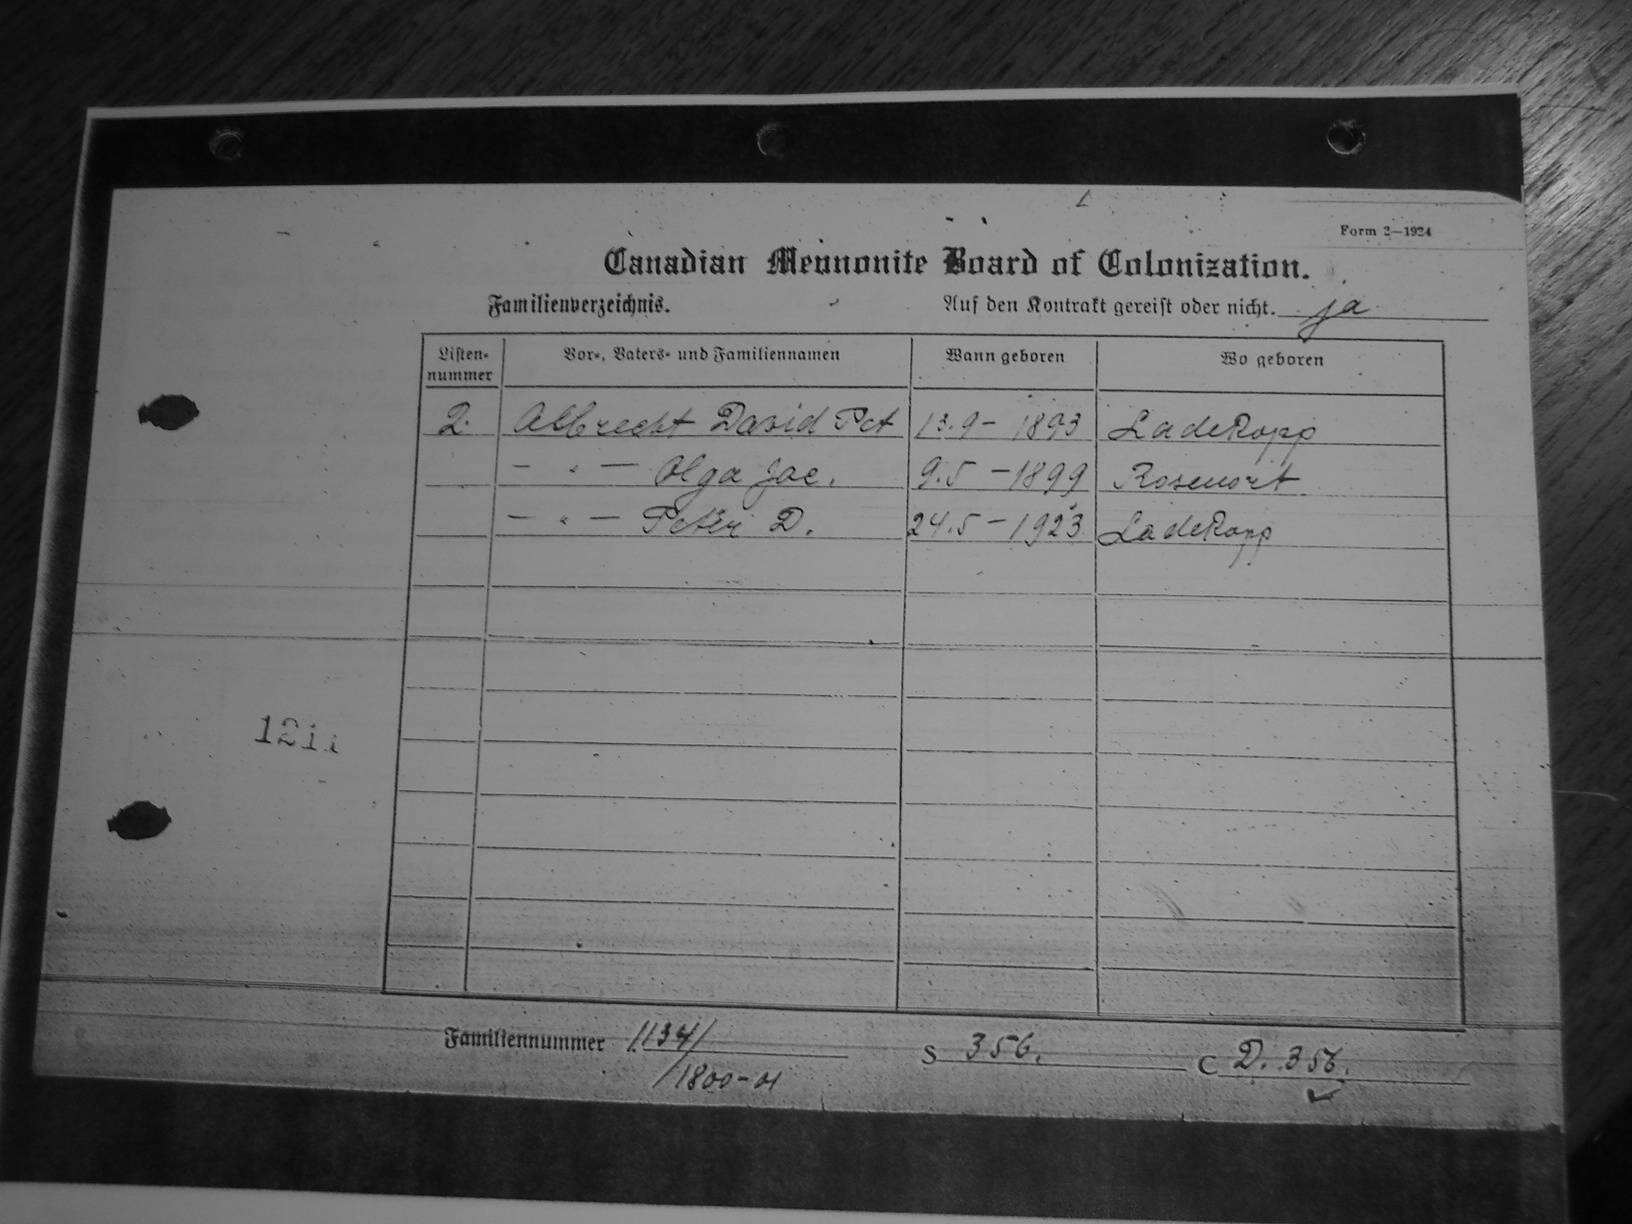 Form 2—1924
Canadian Mennonite Board of Colonization.
Familienverzeichnis. Auf den Kontrakt gereist oder nicht. ja
Listen-nummer Vor-, Vaters- und Familiennamen Wann geboren Wo geboren
2. Albrecht David Pet 13.9 - 1893 Ladekopp
— " — Olga Jac. 9.5 - 1899 Rosenort
— " — Peter D. 24.5 - 1923 Ladekopp
Familiennummer 1134/ S 356. C D. 356.
/1800-01